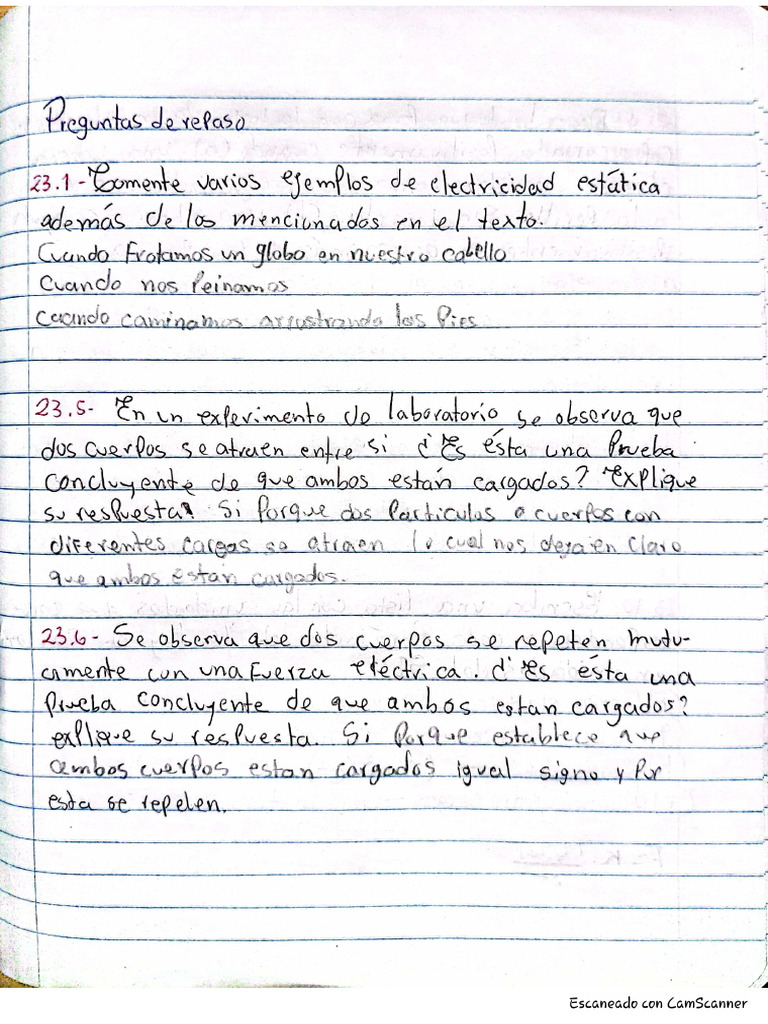 Preguntas de repaso
23.1- Comente varios ejemplos de electricidad estática
además de los mencionados en el texto.
Cuando Frotamos un globo en nuestro cabello
Cuando nos Peinamos
Cuando caminamos arrastrando los Pies
23.5- En un experimento de laboratorio se observa que
dos cuerpos se atraen entre si ¿Es ésta una Prueba
concluyente de que ambos están cargados? Explique
su respuesta. Si Porque dos Particulas o cuerpos con
diferentes cargas se atraen lo cual nos deja en claro
que ambos están cargados.
23.6- Se observa que dos cuerpos se repelen mutu-
amente con una Fuerza eléctrica. ¿Es ésta una
Prueba concluyente de que ambos estan cargados?
explique su respuesta. Si Porque establece que
ambos cuerpos estan cargados igual signo y Por
esta se repelen.
Escaneado con CamScanner